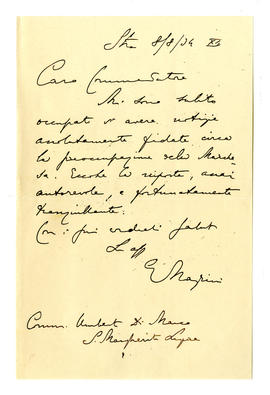 8/8/34 XII
Caro Commendatore
Mi sono subito
occupato di avere notizie
assolutamente fidate circa
la preoccupazione della Marche
sa. Eccole la risposta, assai
autorevole, e fortunatamente
tranquillante.
Con i più cordiali saluti
E
Comm. Umberto Di Marco
S. Margherita Ligure